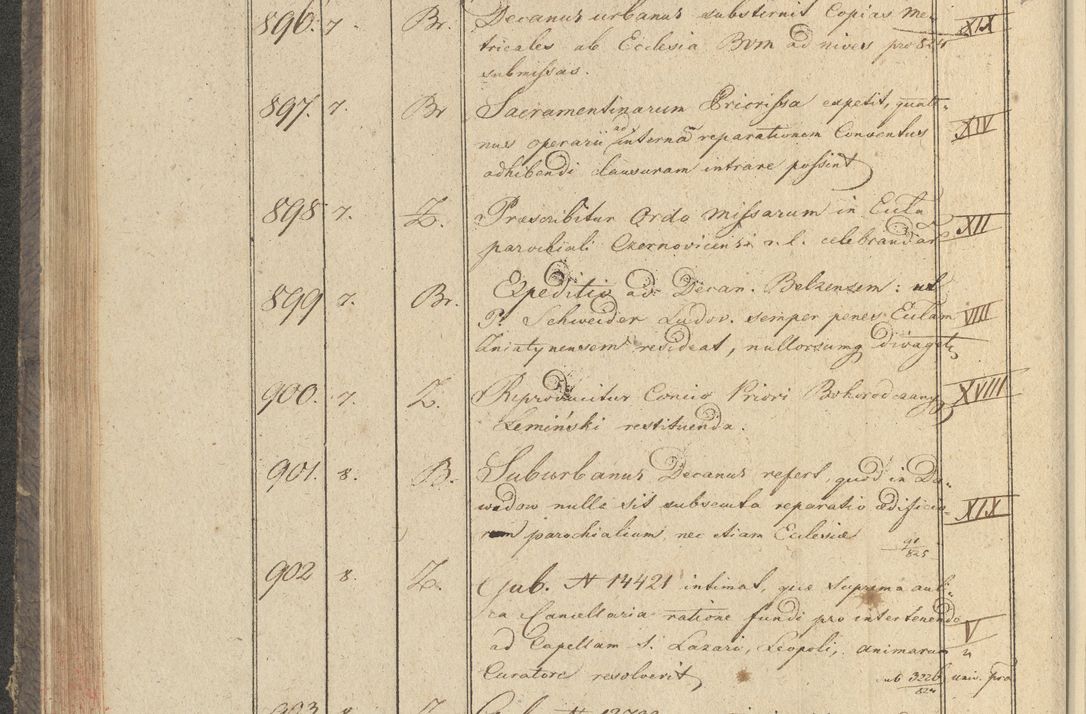 896. 7. Br. Decanus urbanus substernit Copias Me- XIX
tricales ab Ecclesia BVM ad nives pro 824
submissas.
897. 7. Br Sacramentinarum Priorissa expetit, quate-
nus operarii ad internam reparationem Conventus XIV
adhibendi clausuram intrare possint
898 7. Z. Præscribitur Ordo Missarum in Eccla XII
parochiali Czernovicensi r. l. celebrandar
899 7. Br. Expeditio ad Decan. Belzensem: ut
P. Schweider Ludov. semper penes Ecclam VIII
Uniatynensem resideat, nullorsumq divagetr
900. 7. Z. Reproducitur Concio Priori Bohorodczany XVIII
Zemiński restituenda.
901. 8. B. Suburbanus Decanus refert, quod in Da-
widow nulla sit subsecuta reparatio ædificio- XIX
rum parochialium, nec etiam Ecclesiæ 91/825
902 8. Z. Gub. N 14421 intimat, quæ Suprema auli-
ca Cancellaria ratione fundi pro intertenendo V
ad Capellam S. Lazari, Leopoli, animarum
Curatore resolverit, ab 3226/824 univ. pro
903 8. Z. Gub. N